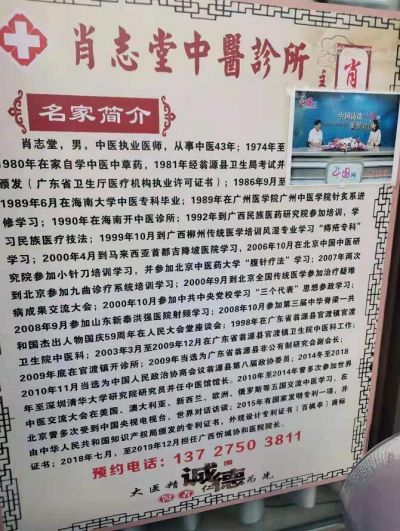 肖志堂中醫診所
主 肖
名家简介
中国访谈
中国网
肖志堂，男，中医执业医师，从事中医43年；1974年至
1980年在家自学中医中草药，1981年经翁源县卫生局考试并
颁发（广东省卫生厅医疗机构执业许可证书）；1986年9月至
1989年6月在海南大学中医专科毕业；1989年在广州医学院广州中医学院针炙系进
修学习；1990年在海南开中医诊所；1992年到广西民族医药研究院参加培训，学
习民族医疗技法；1999年10月到广西柳州传统医学培训风湿专业学习“痹疮专科”
学习；2000年4月到马来西亚首都吉隆坡医院学习，2006年10月在北京中国中医研
究院参加小针刀培训学习，并参加北京中医药大学“腹针疗法”学习；2007年两次
到北京参加九曲诊疗系统培训学习；2000年9月到北京全国传统医学参加治疗疑难
病成果交流大会；2000年10月参加中共中央党校学习“三个代表”思想参政学习；
2008年9月参加山东新泰洪强医院射频学习；2008年10月参加第三届中华脊梁一共
和国杰出人物国庆59周年在人民大会堂座谈会；1998年在广东省翁源县官渡镇官渡
卫生院中医科；2003年3月至2009年12月在广东省翁源县官渡镇卫生院中医科工作；
2009年底在官渡镇开诊所；2009年当选为广东省翁源县非公有制研究会副会长；
2010年11月当选为中国人民政治协商会议翁源县第八届政协委员；2014冬至2018
年至深圳清华大学研究院研究员并任中医馆馆长。2010年至2014年曾多次参加世界
中医交流大会在美国、澳大利亚、新西兰、欧洲、俄罗斯等五国交流中医学习，在
北京曾多次受到中国央视电视台，世界对话访谈；2015年有国家发明专利一项，并
由中华人民共和国知识产权局颁发的专利证书，外观设计专利证书（百槟亭）商标
证书；2018年七月，至2019年12月担任广西忻城协和医院院长。
预约电话：137 2750 3811
大医精诚 仁德为先